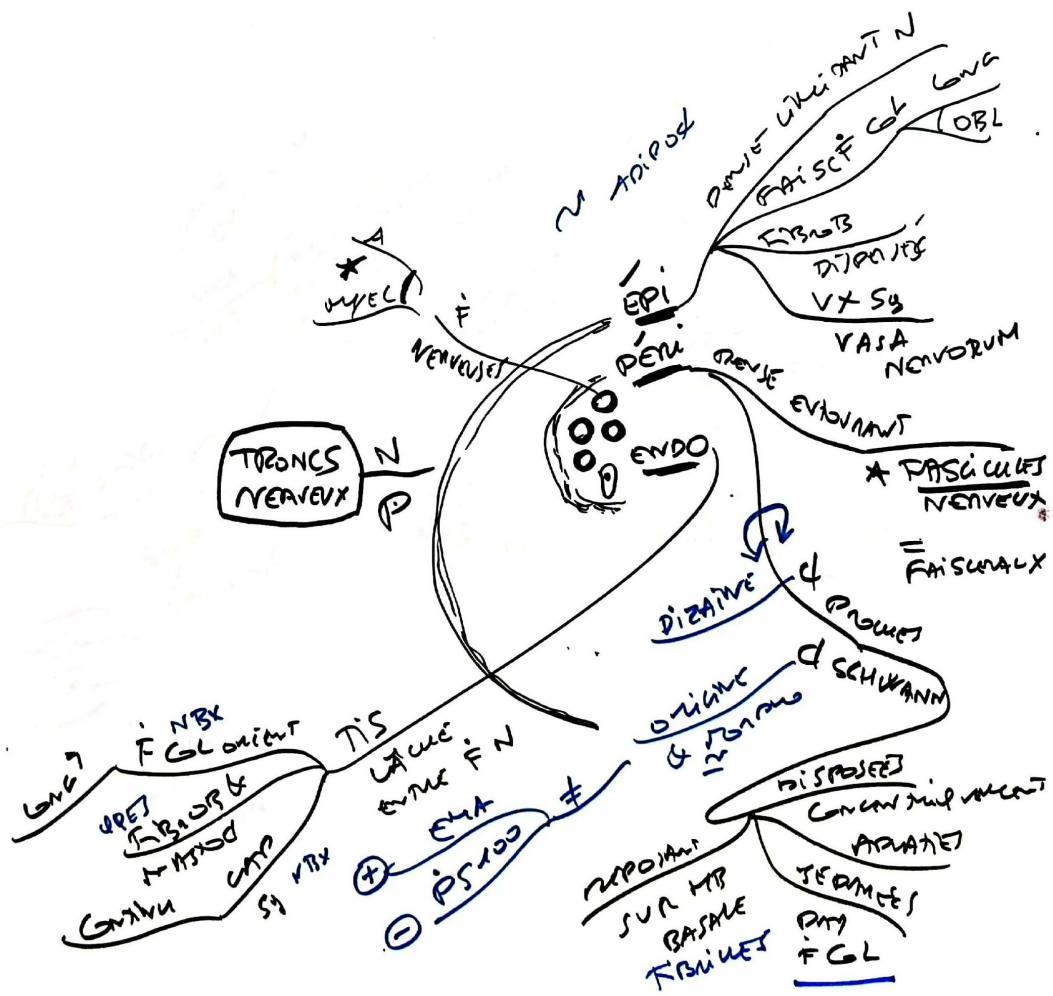 TRONCS
NERVEUX
N
P
A
★
MYEL
Ḟ
NERVEUSES
~ ADIPOS
ÉPI
DENSE LIMITANT N
FAISC Ḟ COL LONG
OBL
FIBROB
DISPERSÉS
VX Sg
VASA
NERVORUM
PÉRI
DENSE
ENTOURANT
★ FASCICULES
NERVEUX
=
FAISCEAUX
ENDO
DIZAINE
PROCHES
SCHWANN
ORIGINE
&
≠
EMA
+
PS100
-
DISPOSÉES
CONCENTRIQUEMENT
APLATIES
REPOSANT
SUR MB
BASALE
FIBRILLES
Ḟ COL
TIS
LÂCHE
ENTRE Ḟ N
NBX
Ḟ COL ORIENT
LONGT
QQES
FIBROB &
MASTOC
CAP
Sg
NBX
CONTINU